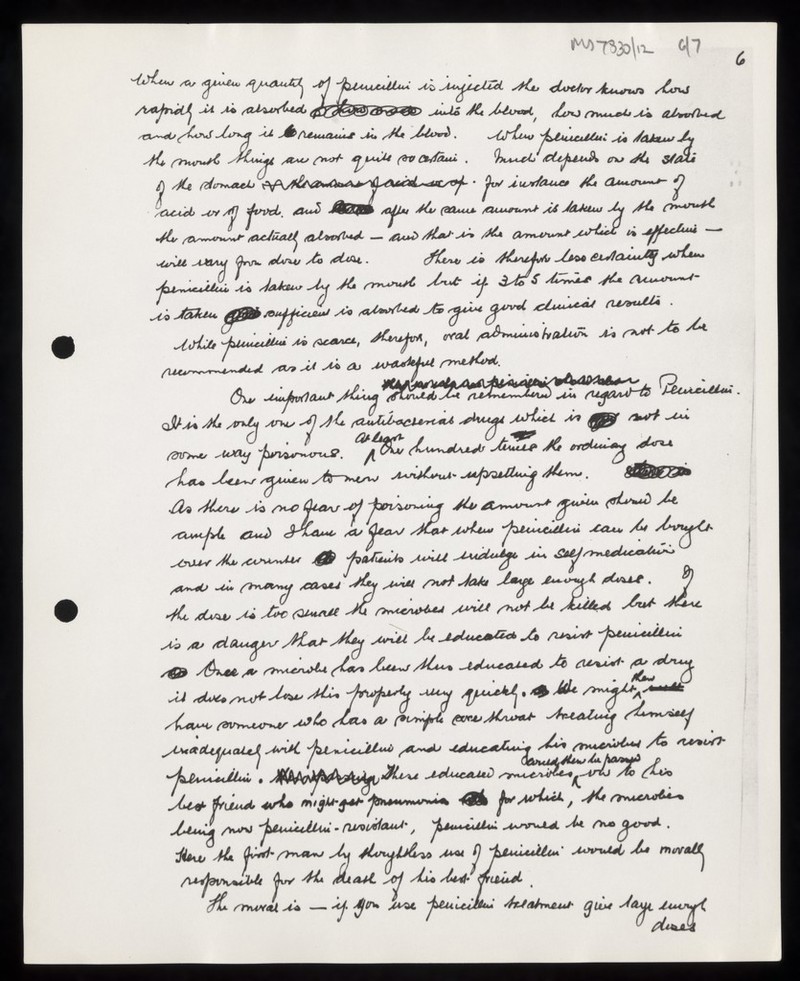 MS 7830/12 6/7
6
When a given quantity of penicillin is injected the doctor knows how
rapidly it is absorbed into the blood, how much is absorbed
and how long it remains in the blood. When penicillin is taken by
the mouth things are not quite so certain. Much depends on the state
of the stomach or the amount of acid or of. for instance the amount of
acid or of food. and after the same amount is taken by the mouth
the amount actually absorbed — and that is the amount which is effective —
will vary from dose to dose. There is therefore less certainty when
penicillin is taken by the mouth but if 3 to 5 times the amount
is taken sufficient is absorbed to give good clinical results.
While penicillin is scarce, therefore, oral administration is not to be
recommended as it is a wasteful method.
One important thing should be remembered in regard to Penicillin.
It is the only one of the antibacterial drugs which is not in
some way poisonous. At least One hundred times the ordinary dose
has been given to men without upsetting them.
As there is no fear of poisoning the amount given should be
ample and I have a fear that when penicillin can be bought
over the counter patients will indulge in self medication
and in many cases they will not take large enough doses. If
the dose is too small the microbes will not be killed but there
is a danger that they will be educated to resist penicillin
Once a microbe has been thus educated to resist a drug
it does not lose this property very quickly. We might then
have someone who has a simple sore throat treating himself
inadequately with penicillin and educating his microbes to resist
penicillin. These educated microbes could then be passed on to his
best friend who might get pneumonia for which, the microbes
being now penicillin-resistant, penicillin would be no good.
Here the first man by thoughtless use of penicillin would be morally
responsible for the death of his best friend.
The moral is — if you use penicillin treatment give large enough
doses